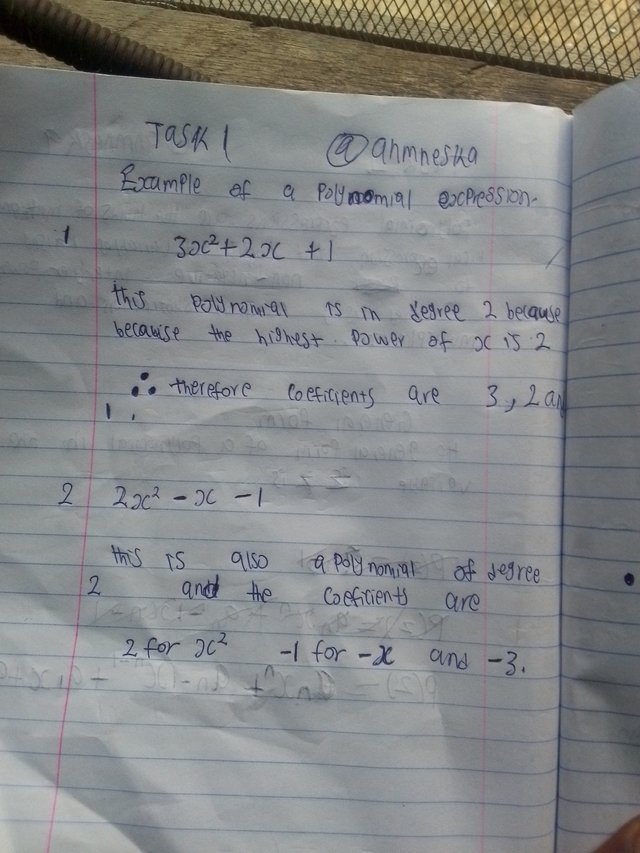 Task 1 @ahmneska
Example of a polynomial expression.
1 3x²+2x +1
this polynomial is in degree 2 because
because the highest power of x is 2
∴ therefore coeficients are 3, 2 an
1.
2 2x² - x - 1
this is also a polynomial of degree
2 and the coeficients are
2 for x² -1 for -x and -3.